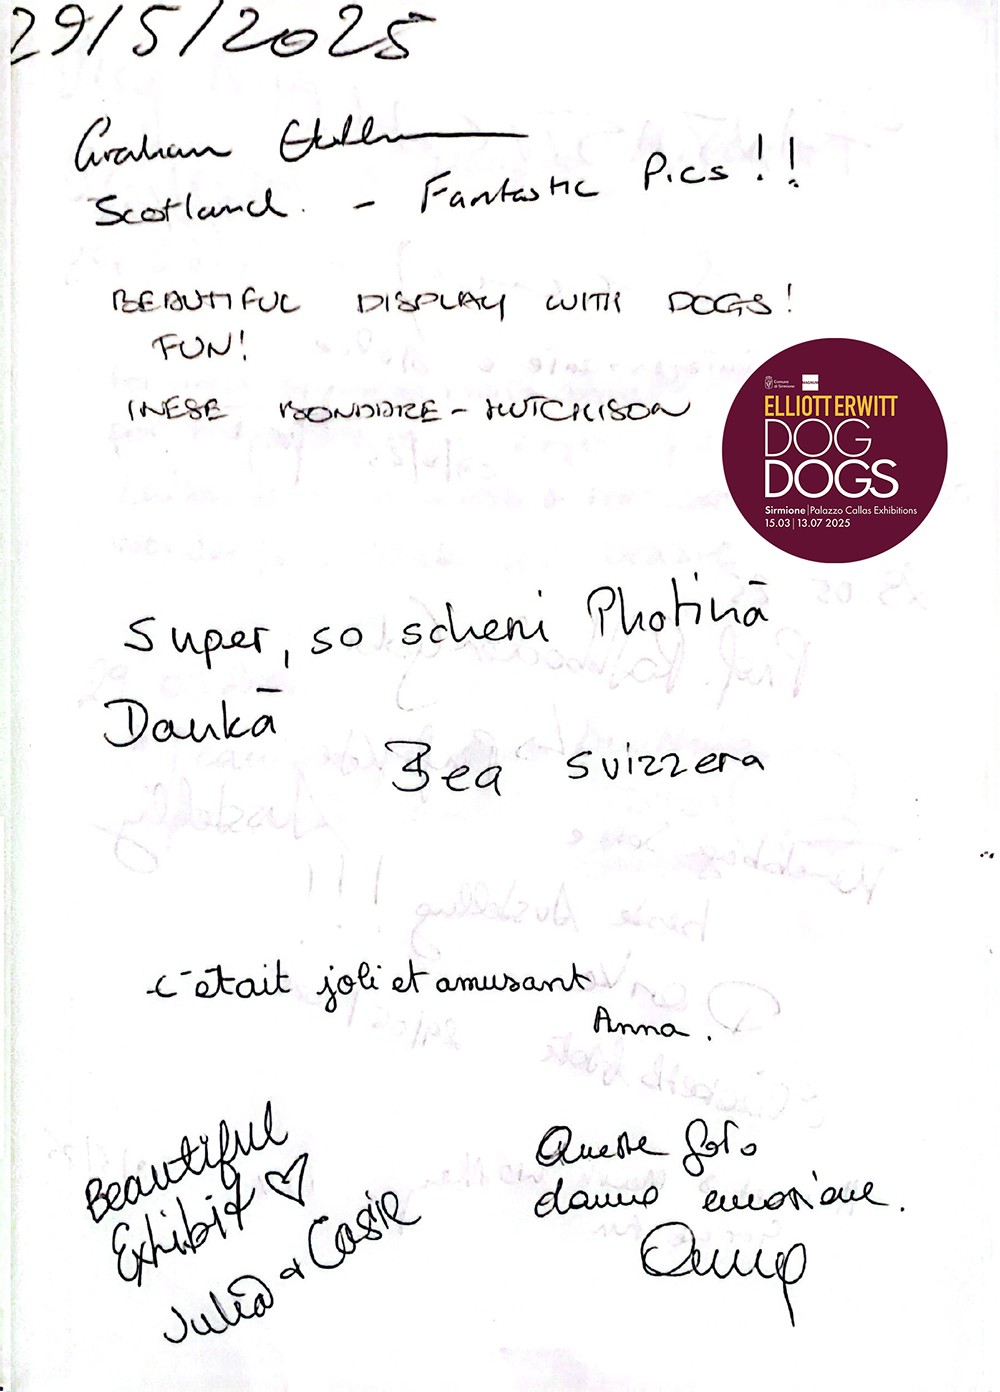 29/5/2025
Graham
Scotland. - Fantastic Pics!!
BEAUTIFUL DISPLAY WITH DOGS!
FUN!
INESE BONDARE-HUTCHISON
Comune di Sirmione
MAGNUM
ELLIOTT ERWITT
DOG
DOGS
Sirmione | Palazzo Callas Exhibitions
15.03 | 13.07 2025
Super, so scheni Photinā
Dankā
Bea svizzera
c'était joli et amusant
Anna.
Beautiful
Exhibit ♡
Julia & Casie
Queste foto
danno emozione.